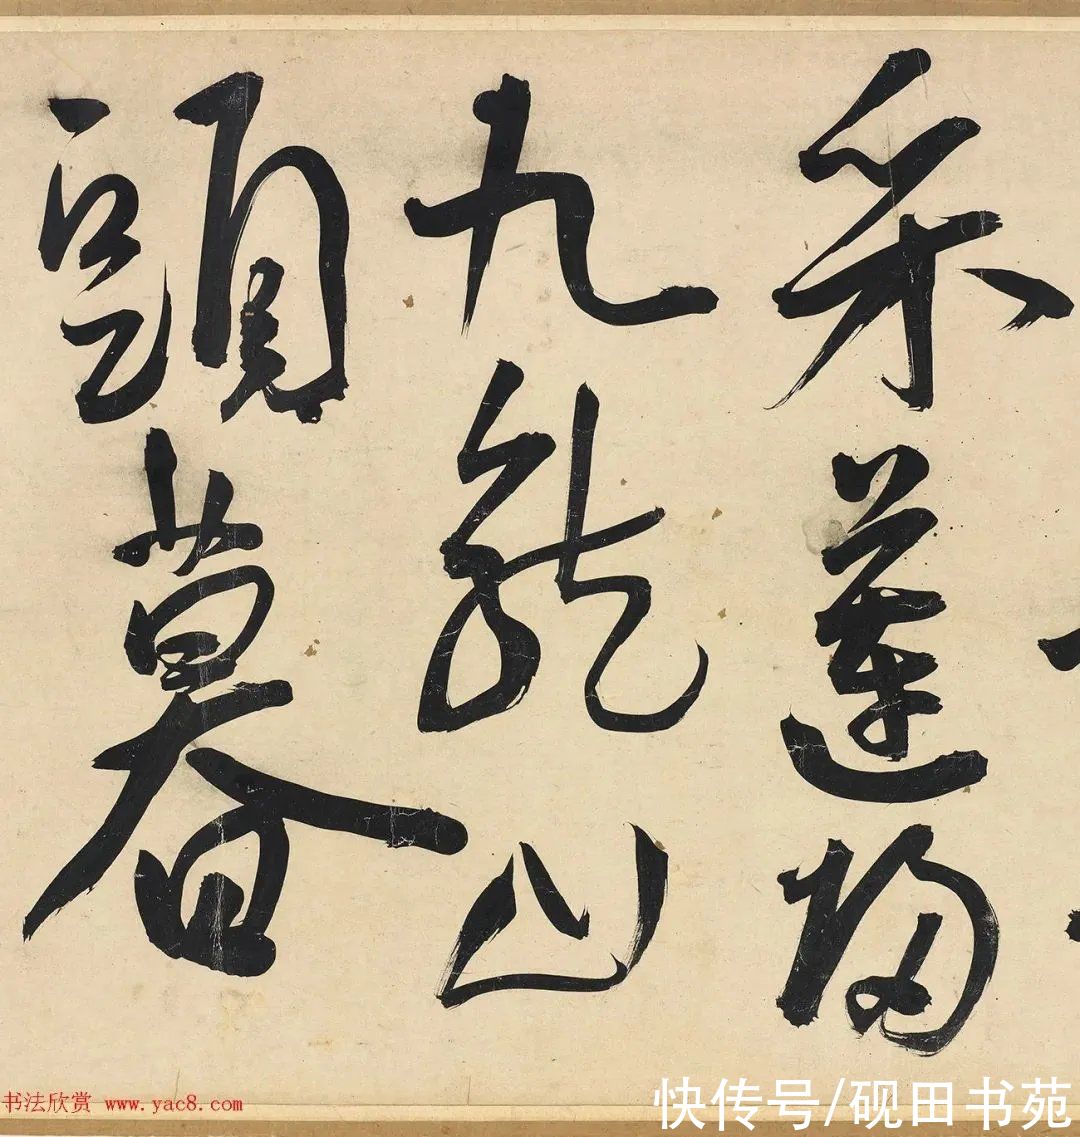 采蓮歸
九龍山
頭暮
书法欣赏 www.yac8.com
快传号/砚田书苑